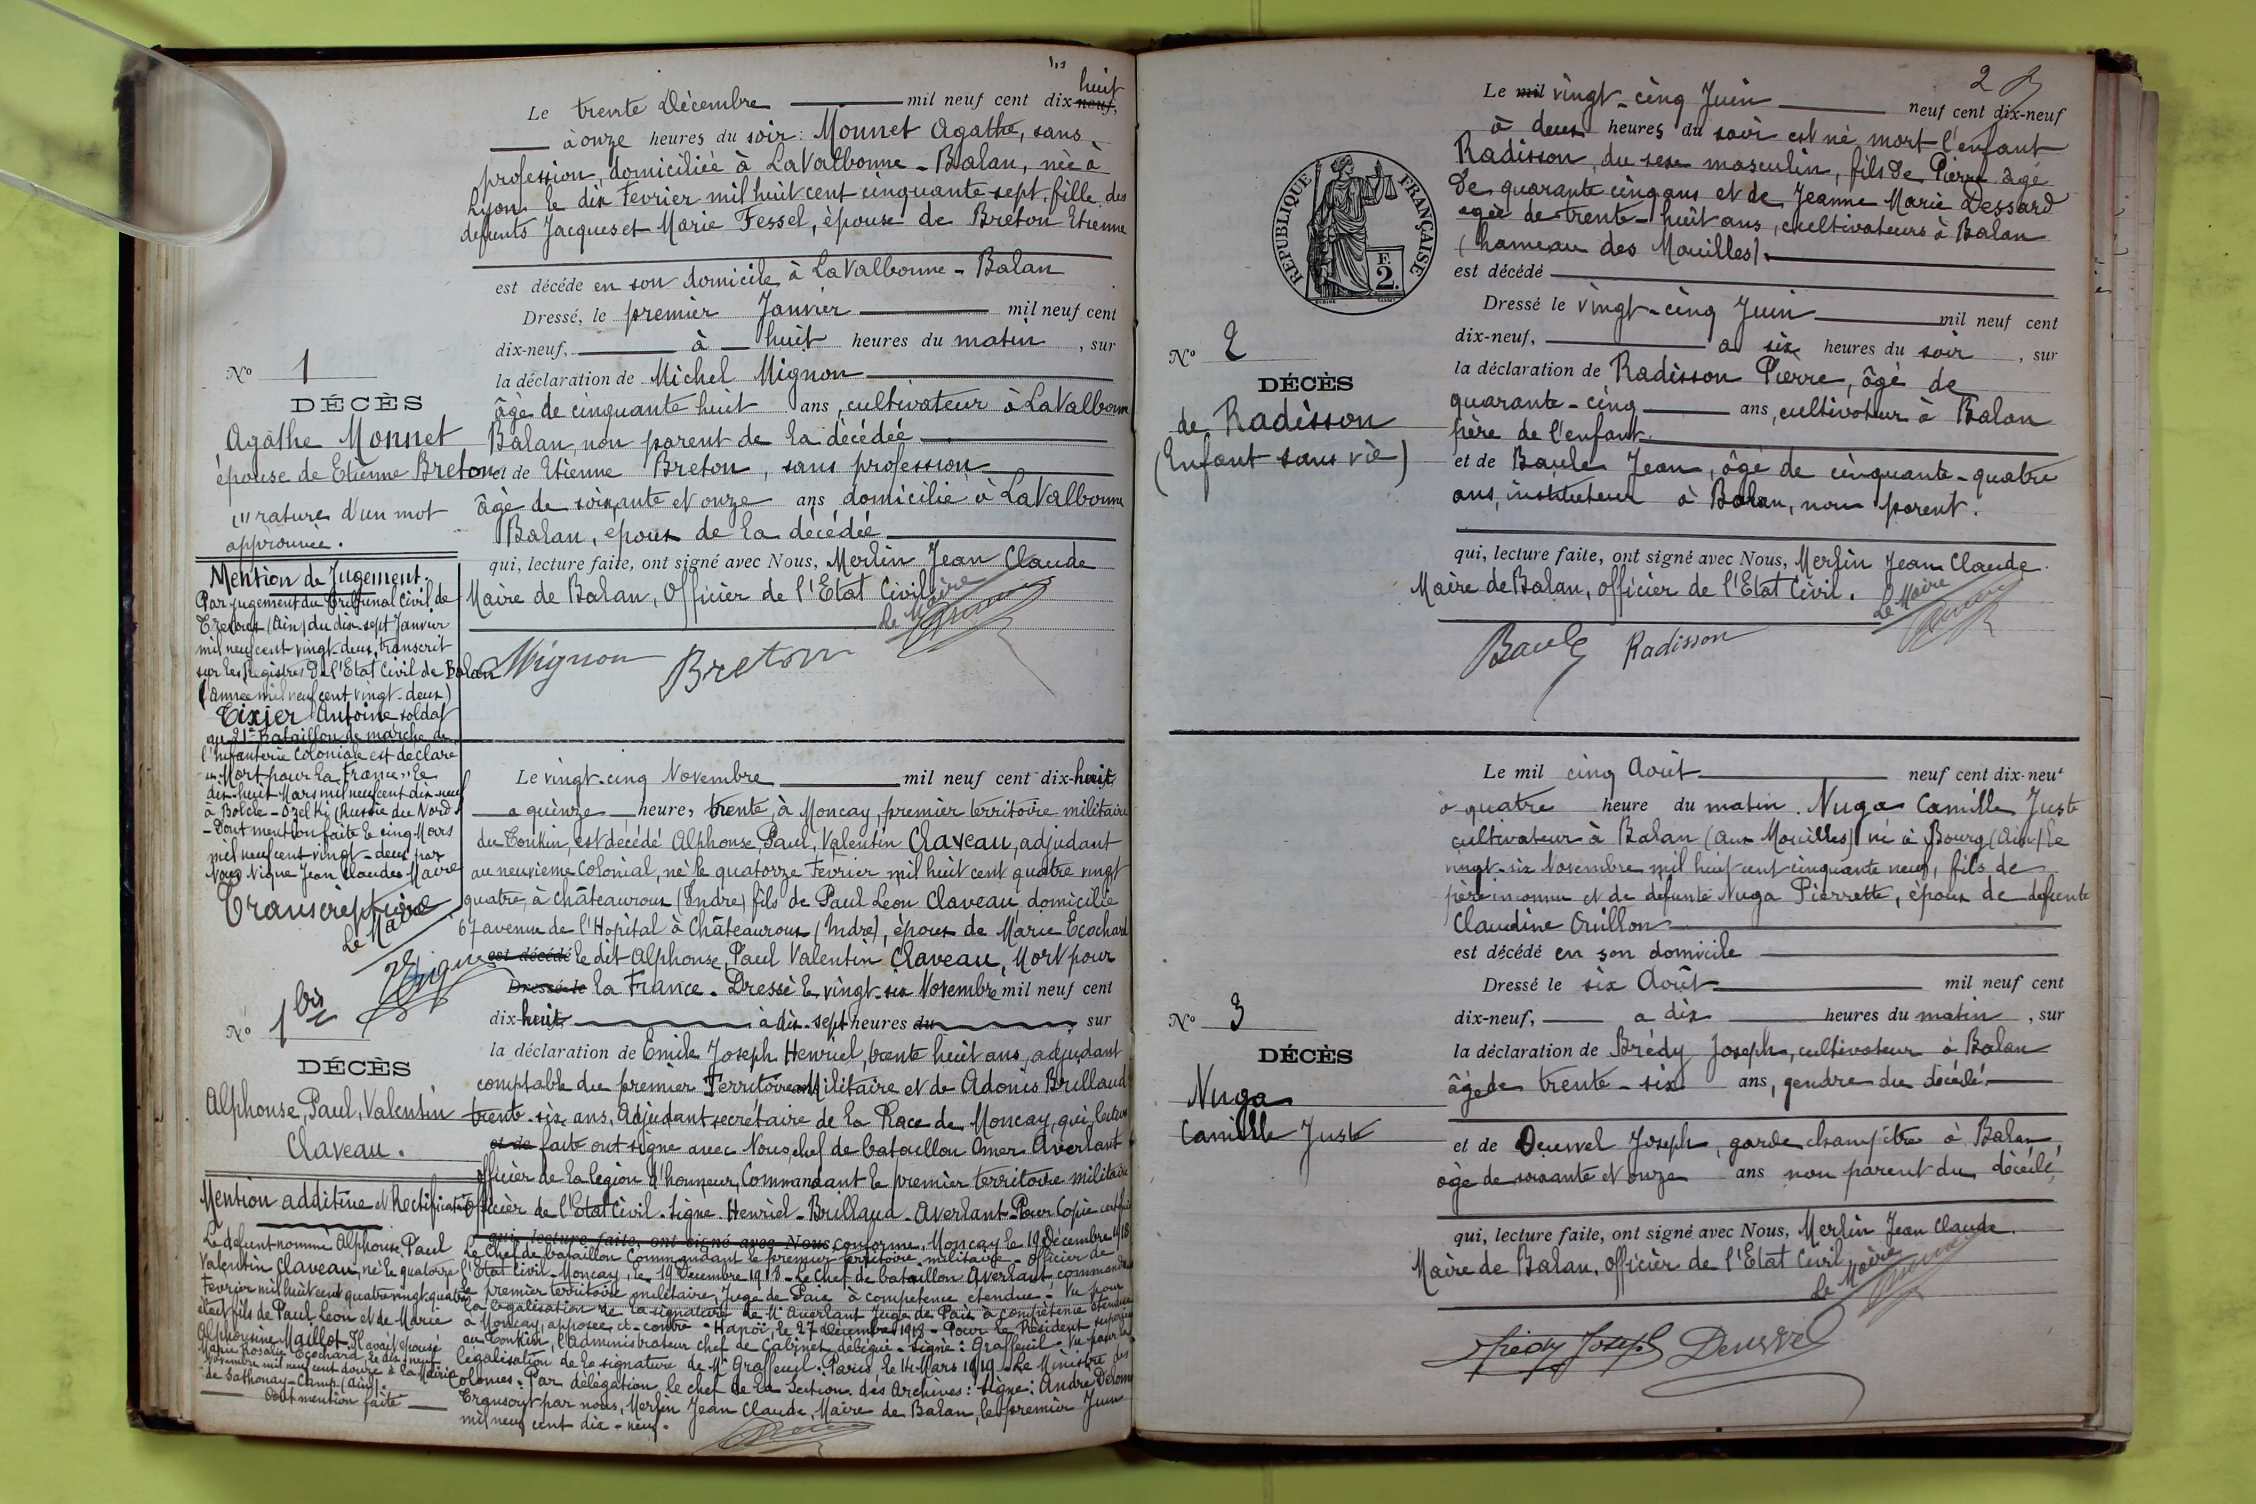 Le trente Décembre mil neuf cent dix-neuf, huit
à onze heures du soir : Monnet Agathe, sans
profession, domiciliée à La Valbonne - Balan, née à
Lyon le dix Fevrier mil huit cent cinquante-sept, fille des
defunts Jacques et Marie Fessel, épouse de Breton Etienne
est décédé en son domicile à La Valbonne - Balan
Dressé, le premier Janvier mil neuf cent
dix-neuf, à huit heures du matin, sur
la déclaration de Michel Mignon
âgé de cinquante huit ans, cultivateur à La Valbonne
Balan, non parent de la décédée
et de Etienne Breton, sans profession
âgé de soixante et onze ans domicilié à La Valbonne
Balan, époux de la décédée
qui, lecture faite, ont signé avec Nous, Merlin Jean Claude
Maire de Balan, Officier de l'Etat Civil.
Le Maire
Mignon Breton
N° 1
DÉCÈS
Agathe Monnet
épouse de Etienne Breton
(1) rature d'un mot
approuvée.
Mention de Jugement.
Par jugement du Tribunal Civil de
Trévoux (Ain) du dix-sept Janvier
mil neuf cent vingt-deux, transcrit
sur les registres de l'Etat Civil de Balan
(année mil neuf cent vingt-deux)
Tixier Antoine soldat
au 21e Bataillon de marche de
l'infanterie Coloniale est déclaré
"Mort pour la France" le
dix-huit Mars mil neuf cent dix-neuf
à Bolcle-Ozelki (Russie du Nord)
- Dont mention faite le cinq Mars
mil neuf cent vingt-deux par
Nous Vigne Jean Claude Maire
Transcription
Le Maire
Vigne
Le vingt-cinq Novembre mil neuf cent dix-huit
à quinze heures trente, à Moncay, premier territoire militaire
du Tonkin, est décédé Alphonse, Paul, Valentin Claveau, adjudant
au neuvième Colonial, né le quatorze Fevrier mil huit cent quatre vingt
quatre, à Châteauroux (Indre) fils de Paul Leon Claveau domicilié
67 avenue de l'Hopital à Châteauroux (Indre), époux de Marie Ecochard
est décédé le dit Alphonse, Paul Valentin Claveau, Mort pour
Dressé le la France. Dressé le vingt-six Novembre mil neuf cent
dix-huit, à dix-sept heures du, sur
la déclaration de Emile Joseph Henriel, trente huit ans, adjudant
comptable du premier Territoire Militaire et de Adonis Brillaud
trente-six ans, Adjudant secrétaire de la Place de Moncay, qui, lecture
et de faite ont signé avec Nous, chef de bataillon Omer Averlant
officier de la légion d'honneur, Commandant le premier territoire militaire
officier de l'Etat Civil. Signé Henriel - Brillaud - Averlant - Pour Copie certifiée
qui, lecture faite, ont signé avec Nous Conforme, Moncay le 19 Décembre 1918
Le Chef de bataillon Commandant le premier territoire militaire Officier de
l'Etat Civil - Moncay, le 19 Décembre 1918 - Le Chef de bataillon Averlant, commandant
le premier territoire militaire, Juge de Paix à compétence étendue - Vu pour
la légalisation de la signature de Mr Averlant Juge de Paix à compétence étendue
à Moncay, apposée ci-contre - Hanoï, le 27 Décembre 1918 - Pour le Résident supérieur
au Tonkin, l'Administrateur chef de Cabinet délégué - Signé : Graffeuil - Vu pour la
légalisation de la signature de Mr Graffeuil : Paris, le 14 Mars 1919 - Le Ministre des
Colonies : Par délégation, le chef de la Section des Archives : Signé : André
Transcrit par nous, Merlin Jean Claude, Maire de Balan, le premier Juin
mil neuf cent dix-neuf.
N° 1 bis
DÉCÈS
Alphonse, Paul, Valentin
Claveau.
Mention additive et Rectificative
Le defunt nommé Alphonse, Paul
Valentin Claveau, né le quatorze
Fevrier mil huit cent quatre vingt quatre
était fils de Paul Leon et de Marie
Alphonsine Maillot. Il avait épousé
Marie Rosalie Ecochard, le dix-neuf
Novembre mil neuf cent douze à la Mairie
de Sathonay-Camp (Ain).
Dont mention faite
2
Le mil vingt-cinq Juin neuf cent dix-neuf
à deux heures du soir est né mort l'enfant
Radisson, du sexe masculin, fils de Pierre âgé
de quarante cinq ans et de Jeanne Marie Dessard
agée de trente-huit ans, cultivateurs à Balan
(hameau des Mouilles).
est décédé
Dressé le vingt-cinq Juin mil neuf cent
dix-neuf, a six heures du soir, sur
la déclaration de Radisson Pierre, âgé de
quarante-cinq ans, cultivateur à Balan
père de l'enfant.
et de Baule Jean, âgé de cinquante-quatre
ans, instituteur à Balan, non parent.
qui, lecture faite, ont signé avec Nous, Merlin Jean Claude.
Maire de Balan, officier de l'Etat Civil.
Le Maire
Baule Radisson
RÉPUBLIQUE FRANÇAISE
F.
2.
N° 2
DÉCÈS
de Radisson
(Enfant sans vie)
Le mil cinq Août neuf cent dix-neuf
à quatre heure du matin. Nuga Camille Juste
cultivateur à Balan (aux Mouilles) né à Bourg (Ain) le
vingt-six Novembre mil huit cent cinquante neuf, fils de
père inconnu et de defunte Nuga Pierrette, époux de defunte
Claudine Ouillon
est décédé en son domicile
Dressé le six Août mil neuf cent
dix-neuf, a dix heures du matin, sur
la déclaration de Brédy Joseph, cultivateur à Balan
âgé de trente-six ans, gendre du décédé.
et de Deurvel Joseph, garde champêtre à Balan,
âgé de soixante et onze ans non parent du décédé,
qui, lecture faite, ont signé avec Nous, Merlin Jean Claude.
Maire de Balan, Officier de l'Etat Civil
Le Maire
Brédy Joseph Deurvel
N° 3
DÉCÈS
Nuga
Camille Juste